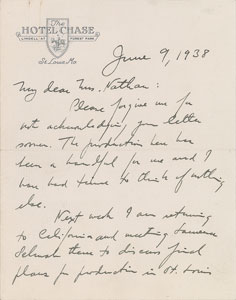 The
HOTEL CHASE
LINDELL AT FOREST PARK
St. Louis, Mo
June 9, 1938
My dear Mrs. Nathan:
Please forgive me for
not acknowledging your letter
sooner. The production here has
been a handful for me and I
have had time to think of nothing
else.
Next week I am returning
to California and meeting Laurence
Schwab there to discuss final
plans for production in St. Louis